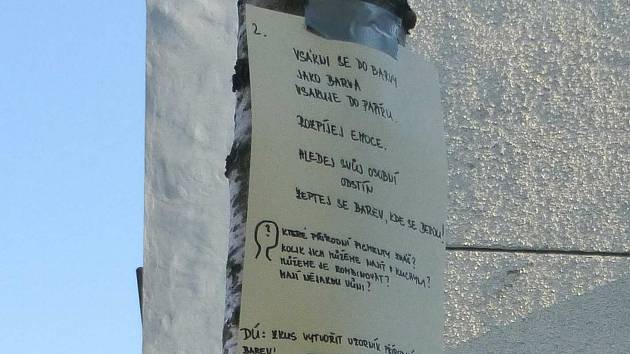 2.
VSÁKNI SE DO BARVY
JAKO BARVA
VSAKUJE DO PAPÍRU.
ROZPÍJEJ EMOCE.
HLEDEJ SVŮJ OSOBNÍ
ODSTÍN
ZEPTEJ SE BAREV, KDE SE BEROU!
?
KTERÉ PŘÍRODNÍ PIGMENTY ZNÁŠ?
KOLIK JICH MŮŽEME NAJÍT V KUCHYNI?
MŮŽEME JE KOMBINOVAT?
MAJÍ NĚJAKOU VŮNI?
DÚ: ZKUS VYTVOŘIT VZORNÍK PŘÍRODNÍ
BAREV!